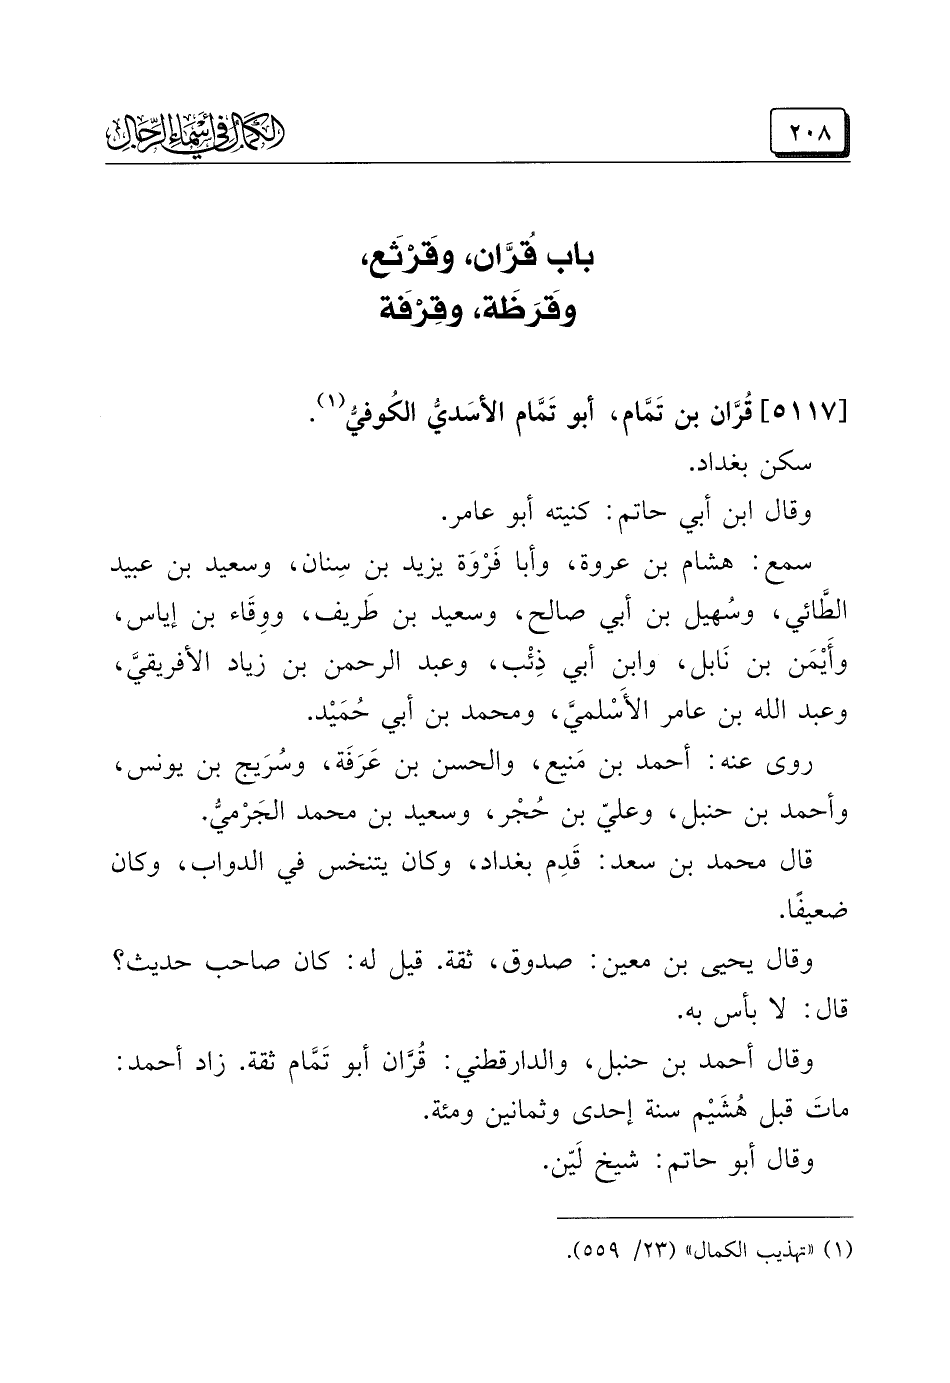 ٢٠٨
الكمال في أسماء الرجال
باب قُرَّان، وقَرْثَع،
وقَرَظَة، وقِرْفَة
[٥١١٧] قُرَّان بن تَمَّام، أبو تَمَّام الأسَديُّ الكُوفيُّ(١).
سكن بغداد.
وقال ابن أبي حاتم: كنيته أبو عامر.
سمع: هشام بن عروة، وأبا فَرْوَة يزيد بن سِنان، وسعيد بن عبيد
الطَّائي، وسُهيل بن أبي صالح، وسعيد بن طَريف، ووِقَاء بن إياس،
وأَيْمَن بن نَابل، وابن أبي ذِئْب، وعبد الرحمن بن زياد الأفريقيَّ،
وعبد الله بن عامر الأَسْلميَّ، ومحمد بن أبي حُمَيْد.
روى عنه: أحمد بن مَنيع، والحسن بن عَرَفَة، وسُرَيج بن يونس،
وأحمد بن حنبل، وعليّ بن حُجْر، وسعيد بن محمد الجَرْميُّ.
قال محمد بن سعد: قَدِم بغداد، وكان يتنخس في الدواب، وكان
ضعيفًا.
وقال يحيى بن معين: صدوق، ثقة. قيل له: كان صاحب حديث؟
قال: لا بأس به.
وقال أحمد بن حنبل، والدارقطني: قُرَّان أبو تَمَّام ثقة. زاد أحمد:
ماتَ قبل هُشَيْم سنة إحدى وثمانين ومئة.
وقال أبو حاتم: شيخ لَيّن.
(١) «تهذيب الكمال» (٢٣/ ٥٥٩).